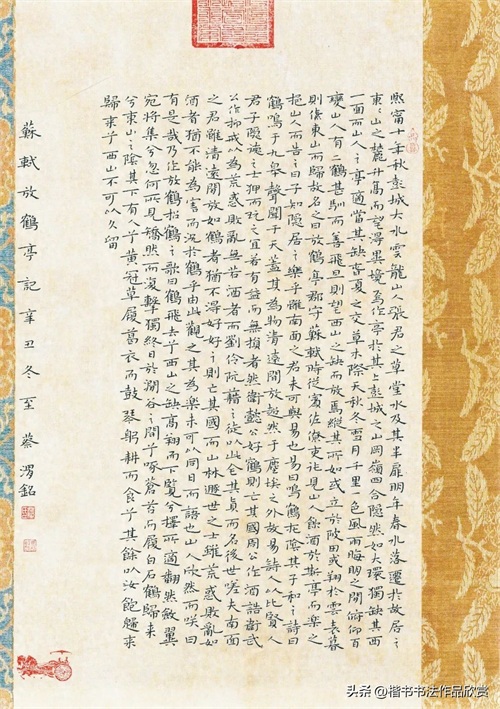 熙寧十年秋彭城大水雲龍山人張君之草堂水及其半扉明年春水落遷於故居之
東東山之麓升高而望得異境焉作亭於其上彭城之山岡嶺四合隱然如大環獨缺其西
一面而山人之亭適當其缺春夏之交草木際天秋冬雪月千里一色風雨晦明之間俯仰百
變山人有二鶴甚馴而善飛旦則望西山之缺而放焉縱其所如或立於陂田或翔於雲表暮
則傃東山而歸故名之曰放鶴亭郡守蘇軾時從賓佐僚吏往見山人飲酒於斯亭而樂之
挹山人而告之曰子知隱居之樂乎雖南面之君未可與易也易曰鳴鶴在陰其子和之詩曰
鶴鳴于九皋聲聞于天蓋其為物清遠閒放超然于塵埃之外故易詩人以比賢人
君子隱德之士狎而玩之宜若有益而無損者然衛懿公好鶴則亡其國周公作酒誥衛武
公作抑戒以為荒惑敗亂無若酒者而劉伶阮籍之徒以此全其真而名後世嗟夫南面
之君雖清遠閒放如鶴者猶不得好好之則亡其國而山林遯世之士雖荒惑敗亂如
酒者猶不能為害而況於鶴乎由此觀之其為樂未可以同日而語也山人欣然而笑曰
有是哉乃作放鶴招鶴之歌曰鶴飛去兮西山之缺高翔而下覽兮擇所適翻然斂翼
宛將集兮忽何所見矯然而復擊獨終日於澗谷之間兮啄蒼苔而履白石鶴歸來
兮東山之陰其下有人兮黃冠草履葛衣而鼓琴躬耕而食兮其餘以汝飽歸來
歸來兮西山不可以久留
蘇軾放鶴亭記辛丑冬至蔡澇銘
头条@楷书书法作品欣赏